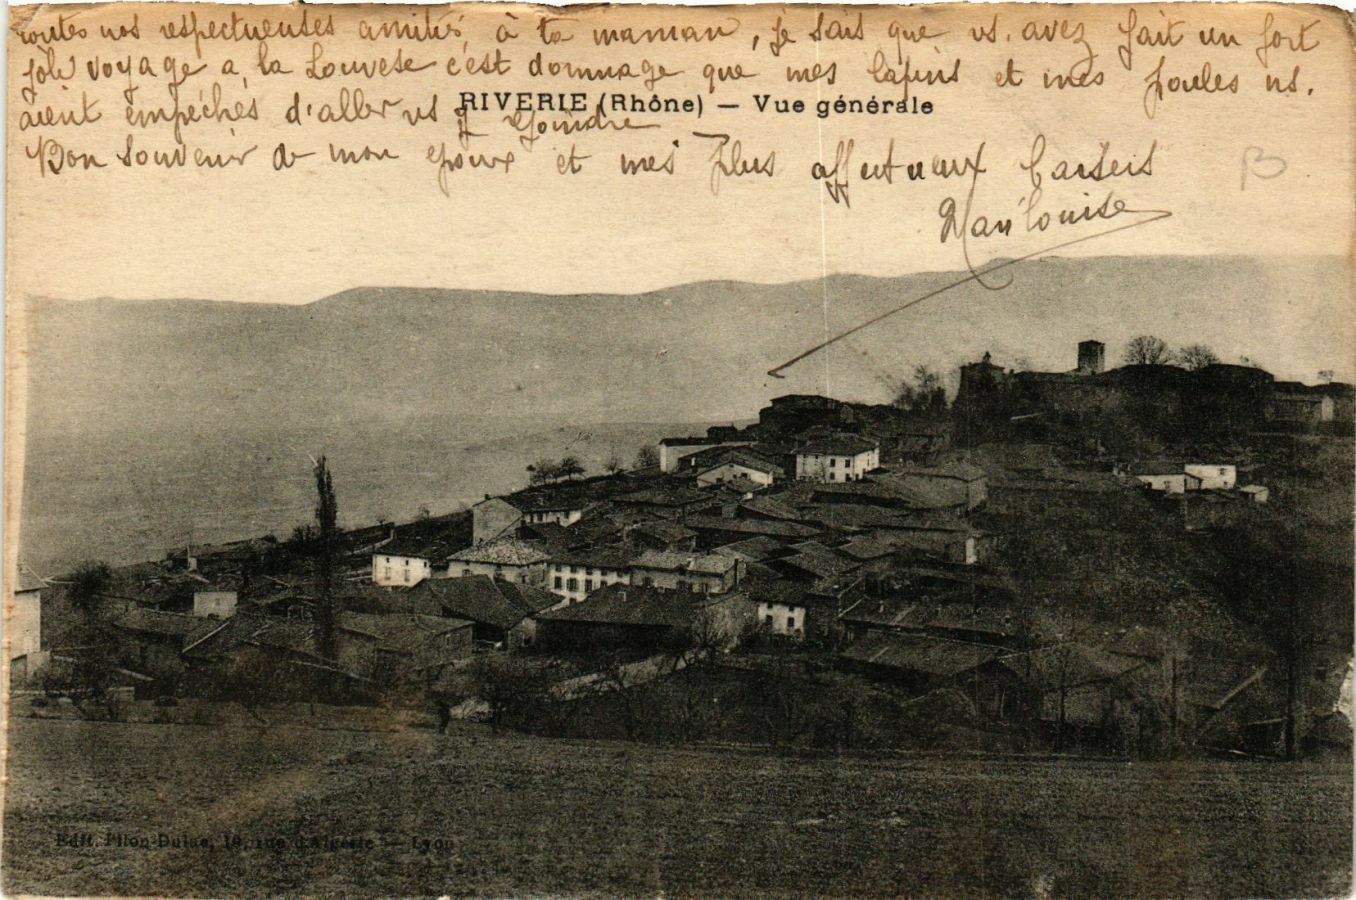 toutes nos respectueuses amitiés, à ta maman, je sais que vs. avez fait un fort
joli voyage à la Louvese c'est dommage que mes lapins et mes poules ns.
aient empéchés d'aller vs y rejoindre
RIVERIE (Rhône) — Vue générale
Bon souvenir de mon époux et mes plus affectueux baisers
Marilouise
B
Edit. Pilon-Dulac, 19, rue d'Algérie — Lyon